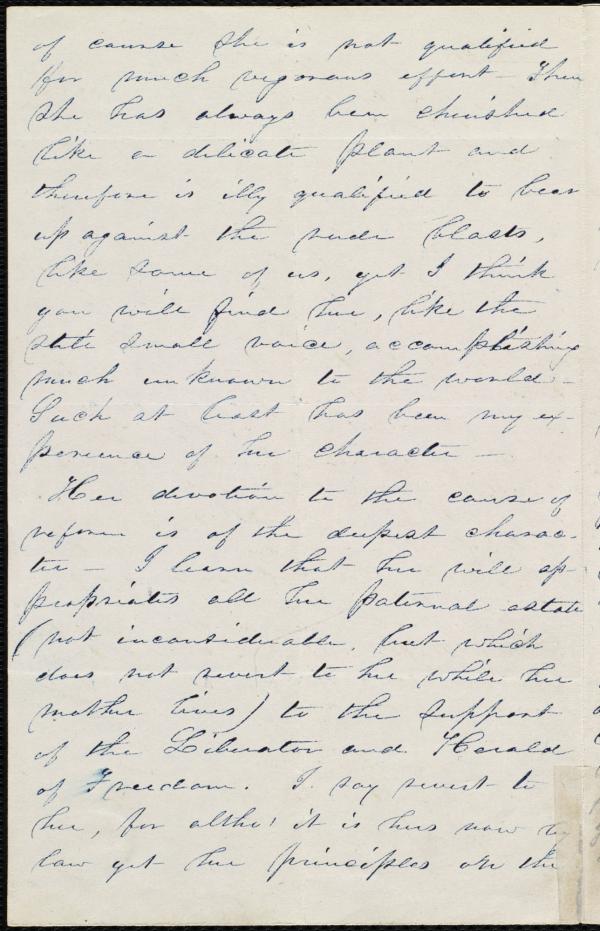 of course she is not qualified
for much vigorous effort - Then
she has always been cherished
like a delicate plant and
therefore is illy qualified to bear
up against the rude blasts,
like some of us, yet I think
you will find her, like the
still small voice, accomplishing
much unknown to the world -
Such at least has been my ex-
perience of her character -
Her devotion to the cause of
reform is of the deepest charac-
ter - I learn that her will ap-
propriates all her paternal estate
(not inconsiderable, but which
does not revert to her while her
mother lives) to the support
of the Liberator and Herald
of Freedom. I say revert to
her, for altho' it is hers now by
law yet her principles on the